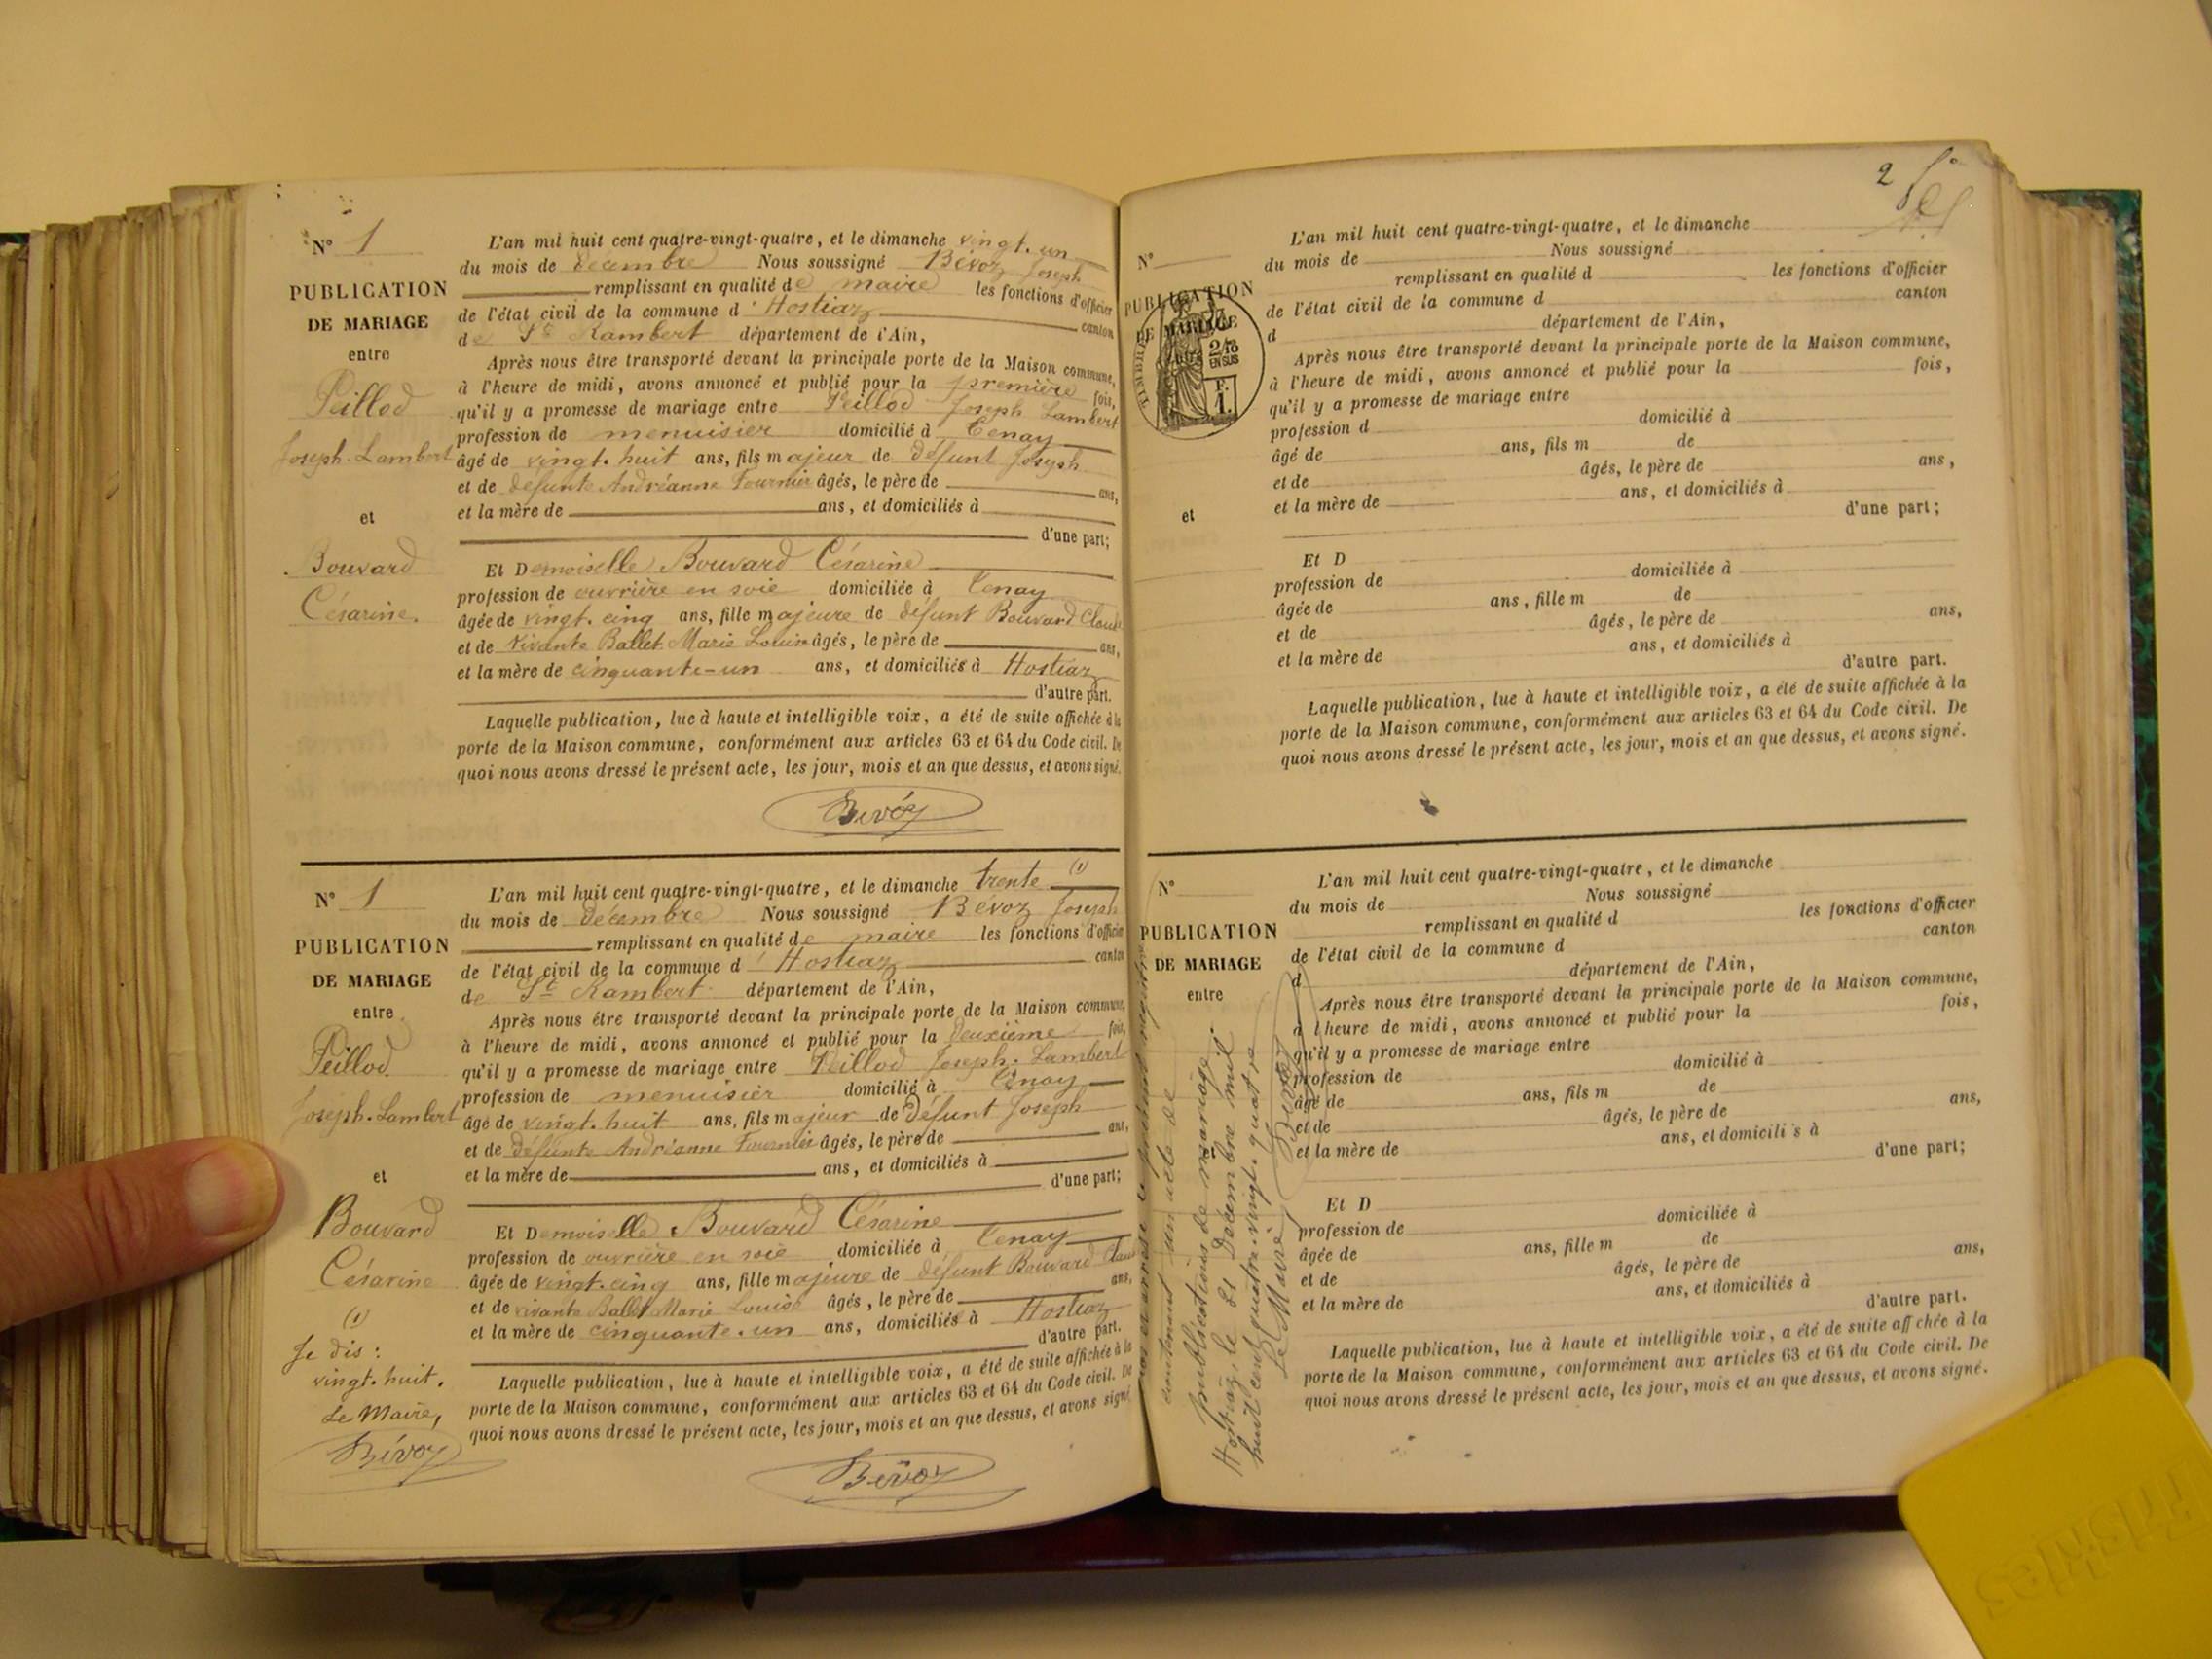 N° 1
PUBLICATION
DE MARIAGE
entre
Peillod
Joseph-Lambert
et
Bouvard
Césarine.
L'an mil huit cent quatre-vingt-quatre, et le dimanche vingt-un
du mois de décembre Nous soussigné Bévoz Joseph
remplissant en qualité de maire les fonctions d'officier
de l'état civil de la commune d'Hostiaz canton
de St Rambert département de l'Ain,
Après nous être transporté devant la principale porte de la Maison commune,
à l'heure de midi, avons annoncé et publié pour la première fois,
qu'il y a promesse de mariage entre Peillod Joseph Lambert
profession de menuisier domicilié à Tenay
âgé de vingt-huit ans, fils majeur de défunt Joseph
et de défunte Andréanne Fournier âgés, le père de ans,
et la mère de ans, et domiciliés à
d'une part;
Et Demoiselle Bouvard Césarine
profession de ouvrière en soie domiciliée à Tenay
âgée de vingt-cinq ans, fille majeure de défunt Bouvard Claude
et de vivante Ballet Marie Louise âgés, le père de ans,
et la mère de cinquante-un ans, et domiciliés à Hostiaz
d'autre part.
Laquelle publication, lue à haute et intelligible voix, a été de suite affichée à la
porte de la Maison commune, conformément aux articles 63 et 64 du Code civil. De
quoi nous avons dressé le présent acte, les jour, mois et an que dessus, et avons signé.
Bévoz
N° 1
PUBLICATION
DE MARIAGE
entre
Peillod
Joseph-Lambert
et
Bouvard
Césarine
(1)
Je dis :
vingt-huit.
Le Maire,
Bévoz
L'an mil huit cent quatre-vingt-quatre, et le dimanche trente (1)
du mois de décembre Nous soussigné Bévoz Joseph
remplissant en qualité de maire les fonctions d'officier
de l'état civil de la commune d'Hostiaz canton
de St Rambert département de l'Ain,
Après nous être transporté devant la principale porte de la Maison commune,
à l'heure de midi, avons annoncé et publié pour la deuxième fois,
qu'il y a promesse de mariage entre Peillod Joseph-Lambert
profession de menuisier domicilié à Tenay
âgé de vingt-huit ans, fils majeur de défunt Joseph
et de défunte Andréanne Fournier âgés, le père de ans,
et la mère de ans, et domiciliés à
d'une part;
Et Demoiselle Bouvard Césarine
profession de ouvrière en soie domiciliée à Tenay
âgée de vingt-cinq ans, fille majeure de défunt Bouvard Claude
et de vivante Ballet Marie Louise âgés, le père de ans,
et la mère de cinquante-un ans, domiciliés à Hostiaz
d'autre part.
Laquelle publication, lue à haute et intelligible voix, a été de suite affichée à la
porte de la Maison commune, conformément aux articles 63 et 64 du Code civil. De
quoi nous avons dressé le présent acte, les jour, mois et an que dessus, et avons signé.
Bévoz
2
N°
PUBLICATION
DE MARIAGE
TIMBRE
2/10
EN SUS
F.
1.
et
L'an mil huit cent quatre-vingt-quatre, et le dimanche
du mois de Nous soussigné
remplissant en qualité d les fonctions d'officier
de l'état civil de la commune d canton
d département de l'Ain,
Après nous être transporté devant la principale porte de la Maison commune,
à l'heure de midi, avons annoncé et publié pour la fois,
qu'il y a promesse de mariage entre
profession d domicilié à
âgé de ans, fils m de
et de âgés, le père de ans,
et la mère de ans, et domiciliés à
d'une part;
Et D
profession de domiciliée à
âgée de ans, fille m de
et de âgés, le père de ans,
et la mère de ans, et domiciliés à
d'autre part.
Laquelle publication, lue à haute et intelligible voix, a été de suite affichée à la
porte de la Maison commune, conformément aux articles 63 et 64 du Code civil. De
quoi nous avons dressé le présent acte, les jour, mois et an que dessus, et avons signé.
N°
PUBLICATION
DE MARIAGE
entre
L'an mil huit cent quatre-vingt-quatre, et le dimanche
du mois de Nous soussigné
remplissant en qualité d les fonctions d'officier
de l'état civil de la commune d canton
d département de l'Ain,
Après nous être transporté devant la principale porte de la Maison commune,
à l'heure de midi, avons annoncé et publié pour la fois,
qu'il y a promesse de mariage entre
profession de domicilié à
âgé de ans, fils m de
et de âgés, le père de ans,
et la mère de ans, et domicili s à
d'une part;
Et D
profession de domiciliée à
âgée de ans, fille m de
et de âgés, le père de ans,
et la mère de ans, et domiciliés à
d'autre part.
Laquelle publication, lue à haute et intelligible voix, a été de suite aff chée à la
porte de la Maison commune, conformément aux articles 63 et 64 du Code civil. De
quoi nous avons dressé le présent acte, les jour, mois et an que dessus, et avons signé.
arrêté le présent registre
contenant un acte de
publications de mariage.
Hostiaz, le 31 Décembre mil
huit cent quatre-vingt-quatre
Le Maire,
Bévoz